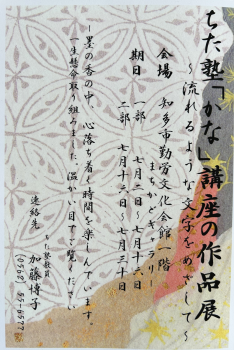 ちた塾「かな」講座の作品展
～流れるような文字をめざして～
会場 知多市勤労文化会館一階
まちかどギャラリー
期日 一部 七月二日～七月十六日
二部 七月十六日～七月三十日
一墨の香の中、心落ち着く時間を楽しんでいます。
一生懸命取り組みました。温かい目でご覧ください
ちた塾教員
連絡先 加藤博子